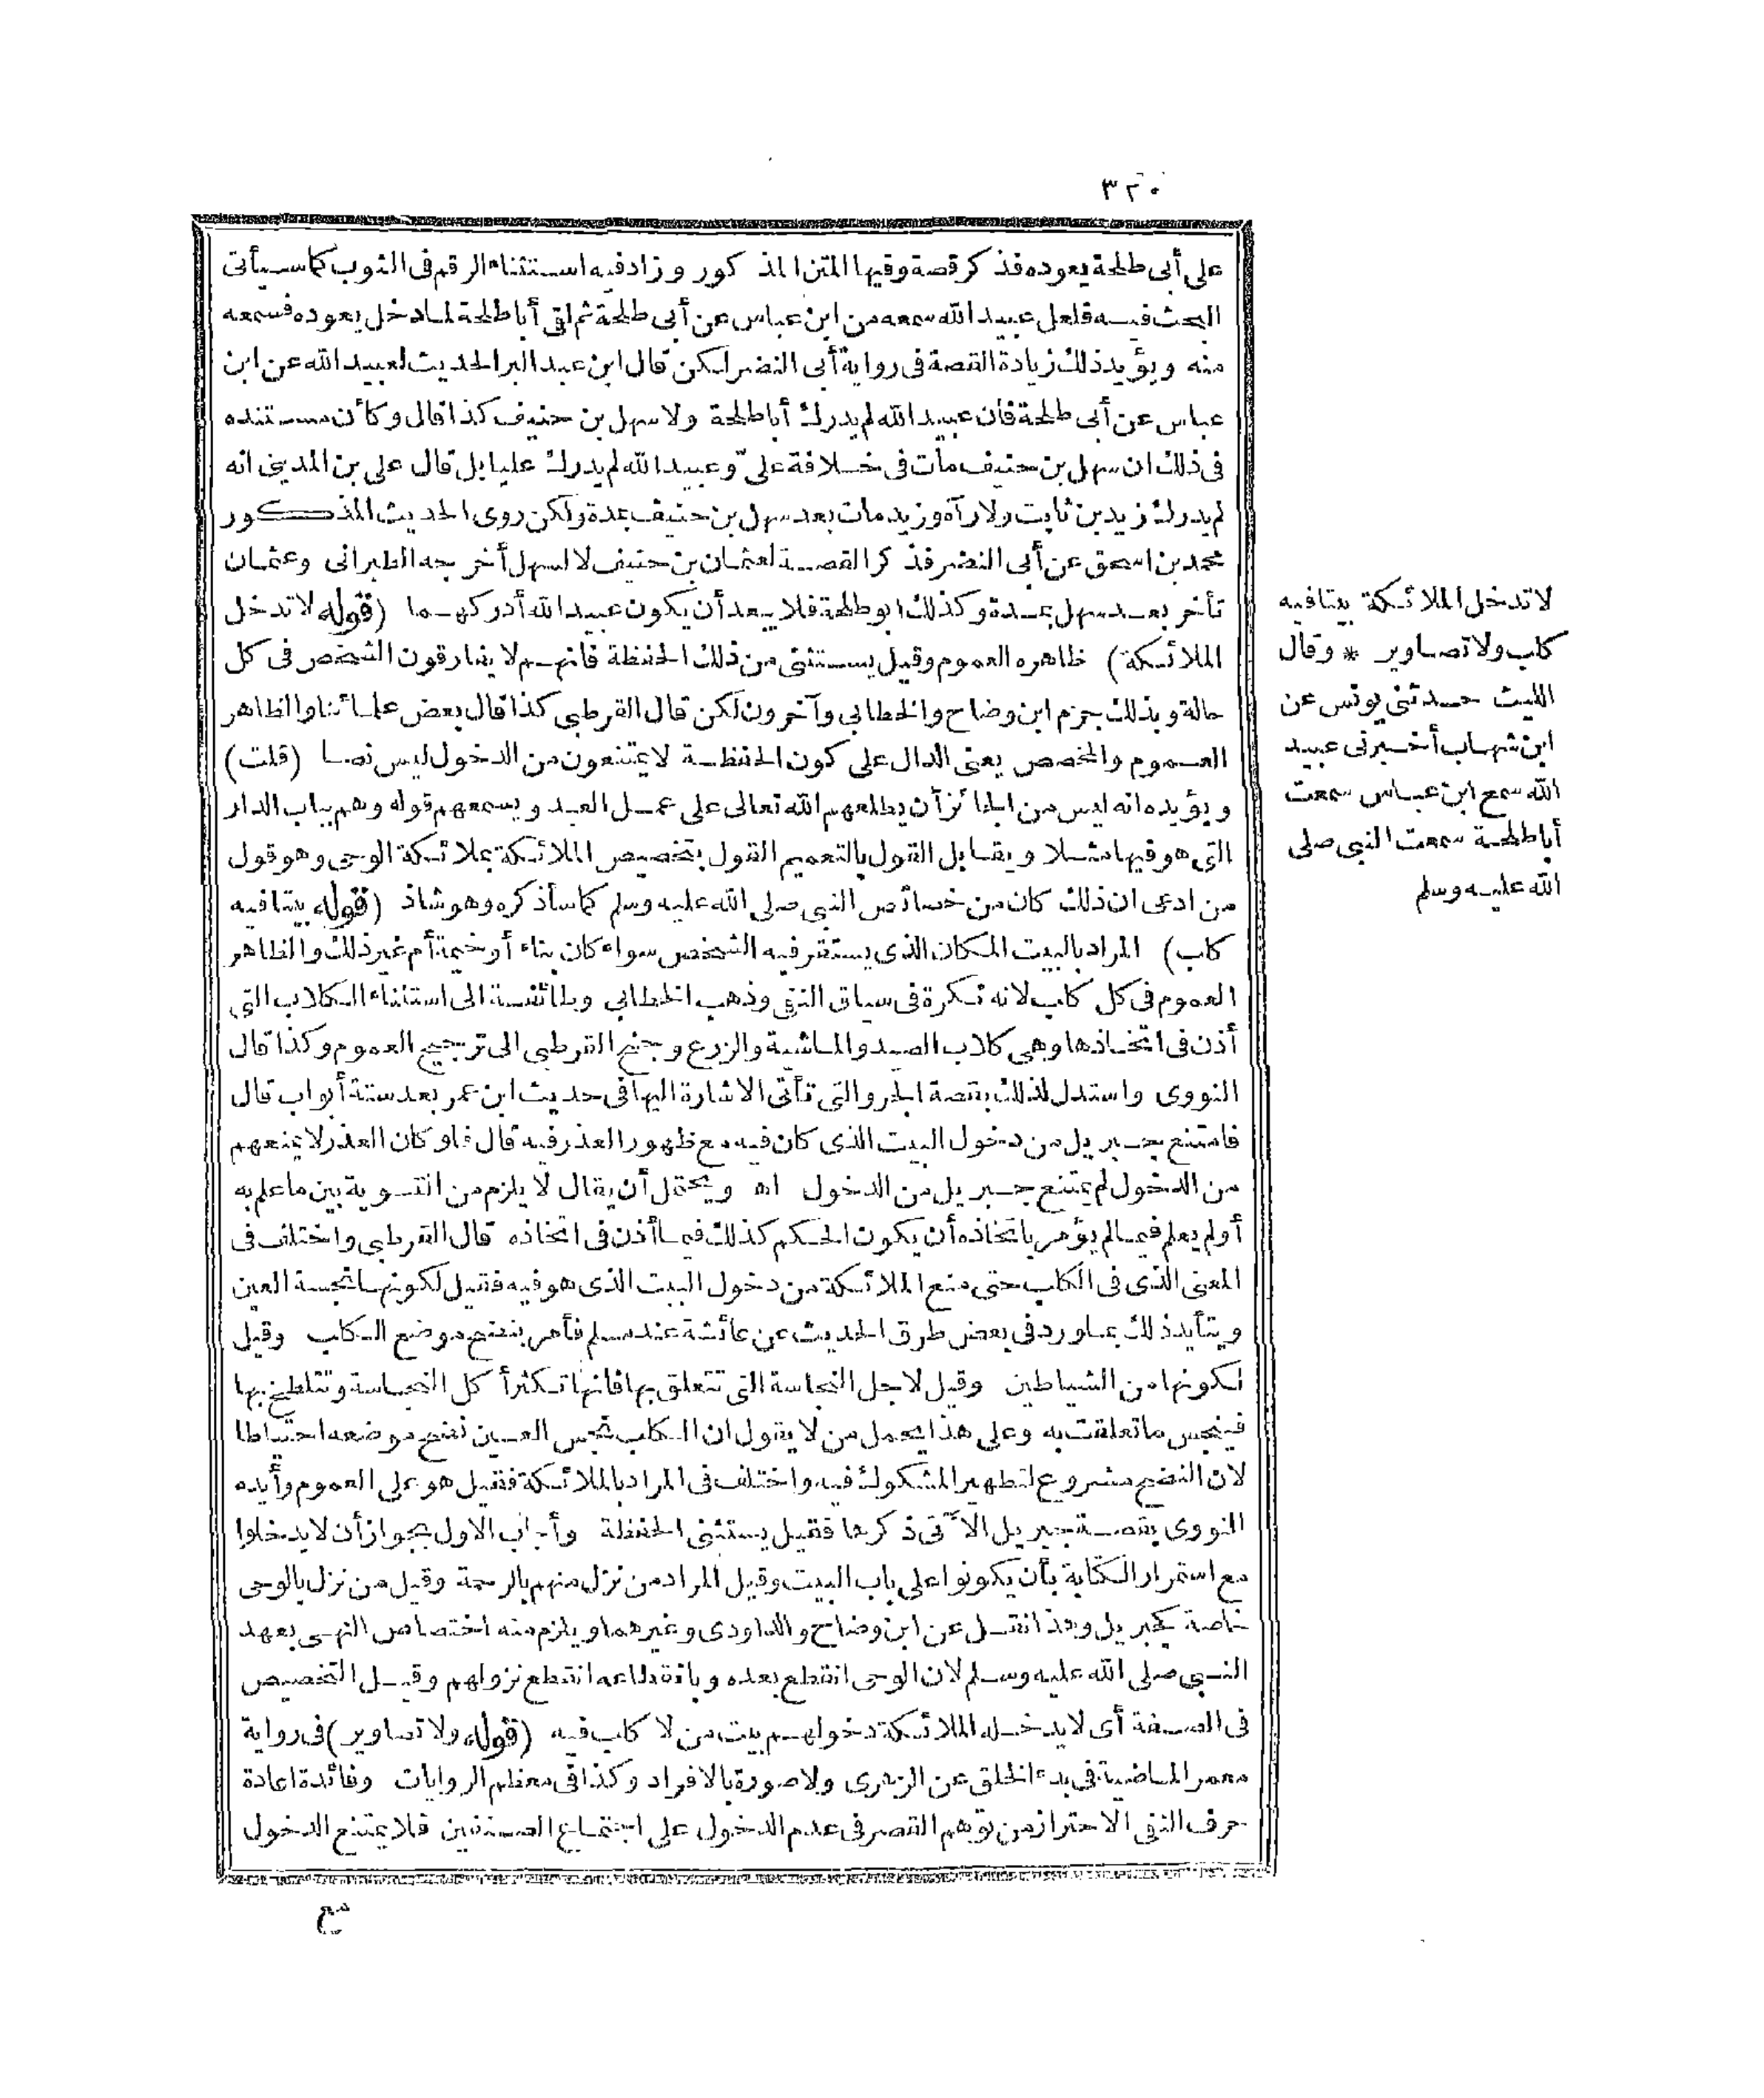 ٣٢٠
على أبى طلحة يعوده فذكر قصة وفيها المتن المذكور وزاد فيه استثناء الرقم فى الثوب كماسيأتى
البحث فيه فلعل عبيد الله سمعه من ابن عباس عن أبى طلحة ثم لقى أباطلحة لما دخل يعوده فسمعه
منه ويؤيد ذلك زيادة القصة فى رواية أبى النضر لكن قال ابن عبد البر الحديث لعبيد الله عن ابن
عباس عن أبى طلحة فان عبيد الله لم يدرك أباطلحة ولا سهل بن حنيف كذا قال وكأن مستنده
فى ذلك ان سهل بن حنيف مات فى خلافة علىّ وعبيد الله لم يدرك عليا بل قال على بن المدينى انه
لم يدرك زيد بن ثابت ولا رآه وزيد مات بعد سهل بن حنيف بمدة ولكن روى الحديث المذكور
محمد بن اسحق عن أبى النضر فذكر القصة لعثمان بن حنيف لا لسهل أخرجه الطبرانى وعثمان
تأخر بعد سهل بمدة وكذلك ابو طلحة فلا يبعد أن يكون عبيد الله أدركهما (قوله لا تدخل
الملائكة) ظاهره العموم وقيل يستثنى من ذلك الحفظة فانهم لا يفارقون الشخص فى كل
حالة وبذلك جزم ابن وضاح والخطابى وآخرون لكن قال القرطبى كذا قال بعض علمائنا والظاهر
العموم والمخصص يعنى الدال على كون الحفظة لا يمتنعون من الدخول ليس نصا (قلت)
ويؤيده انه ليس من الجائز أن يطلعهم الله تعالى على عمل العبد ويسمعهم قوله وهم بباب الدار
التى هو فيها مثلا ويقابل القول بالتعميم القول بتخصيص الملائكة بملائكة الوحى وهو قول
من ادعى ان ذلك كان من خصائص النبى صلى الله عليه وسلم كما سأذكره وهو شاذ (قوله بيتا فيه
كلب) المراد بالبيت المكان الذى يستقر فيه الشخص سواء كان بناء أو خيمة أم غير ذلك والظاهر
العموم فى كل كلب لانه نكرة فى سياق النفى وذهب الخطابى وطائفة الى استثناء الكلاب التى
أذن فى اتخاذها وهى كلاب الصيد والماشية والزرع وجنح القرطبى الى ترجيح العموم وكذا قال
النووى واستدل لذلك بقصة الجرو التى تأتى الاشارة اليها فى حديث ابن عمر بعد ستة أبواب قال
فامتنع جبريل من دخول البيت الذى كان فيه مع ظهور العذر فيه قال فلو كان العذر لا يمنعهم
من الدخول لم يمتنع جبريل من الدخول اه ويحتمل أن يقال لا يلزم من التسوية بين ما علم به
أو لم يعلم فيما لم يؤمر باتخاذه أن يكون الحكم كذلك فيما أذن فى اتخاذه قال القرطبى واختلف فى
المعنى الذى فى الكلب حتى منع الملائكة من دخول البيت الذى هو فيه فقيل لكونها نجسة العين
ويتأيد ذلك بما ورد فى بعض طرق الحديث عن عائشة عند مسلم فأمر بنضح موضع الكلب وقيل
لكونها من الشياطين وقيل لاجل النجاسة التى تتعلق بها فانها تكثر أكل النجاسة وتتلطخ بها
فينجس ما تعلقت به وعلى هذا يحمل من لا يقول ان الكلب نجس العين نضح موضعه احتياطا
لان النضح مشروع لتطهير المشكوك فيه واختلف فى المراد بالملائكة فقيل هو على العموم وأيده
النووى بقصة جبريل الآتى ذكرها فقيل يستثنى الحفظة وأجاب الاول بجواز أن لا يدخلوا
مع استمرار الكتابة بأن يكونوا على باب البيت وقيل المراد من نزل منهم بالرحمة وقيل من نزل بالوحى
خاصة كجبريل وهذا نقل عن ابن وضاح والداودى وغيرهما ويلزم منه اختصاص النهى بعهد
النبى صلى الله عليه وسلم لان الوحى انقطع بعده وبانقطاعه انقطع نزولهم وقيل التخصيص
فى الصفة أى لا يدخله الملائكة دخولهم بيت من لا كلب فيه (قوله ولا تصاوير) فى رواية
معمر الماضية فى بدء الخلق عن الزهرى ولا صورة بالافراد وكذا فى معظم الروايات وفائدة اعادة
حرف النفى الاحتراز من توهم القصر فى عدم الدخول على اجتماع الصنفين فلا يمتنع الدخول
مع
لا تدخل الملائكة بيتا فيه
كلب ولا تصاوير * وقال
الليث حدثنى يونس عن
ابن شهاب أخبرنى عبيد
الله سمع ابن عباس سمعت
أباطلحة سمعت النبى صلى
الله عليه وسلم